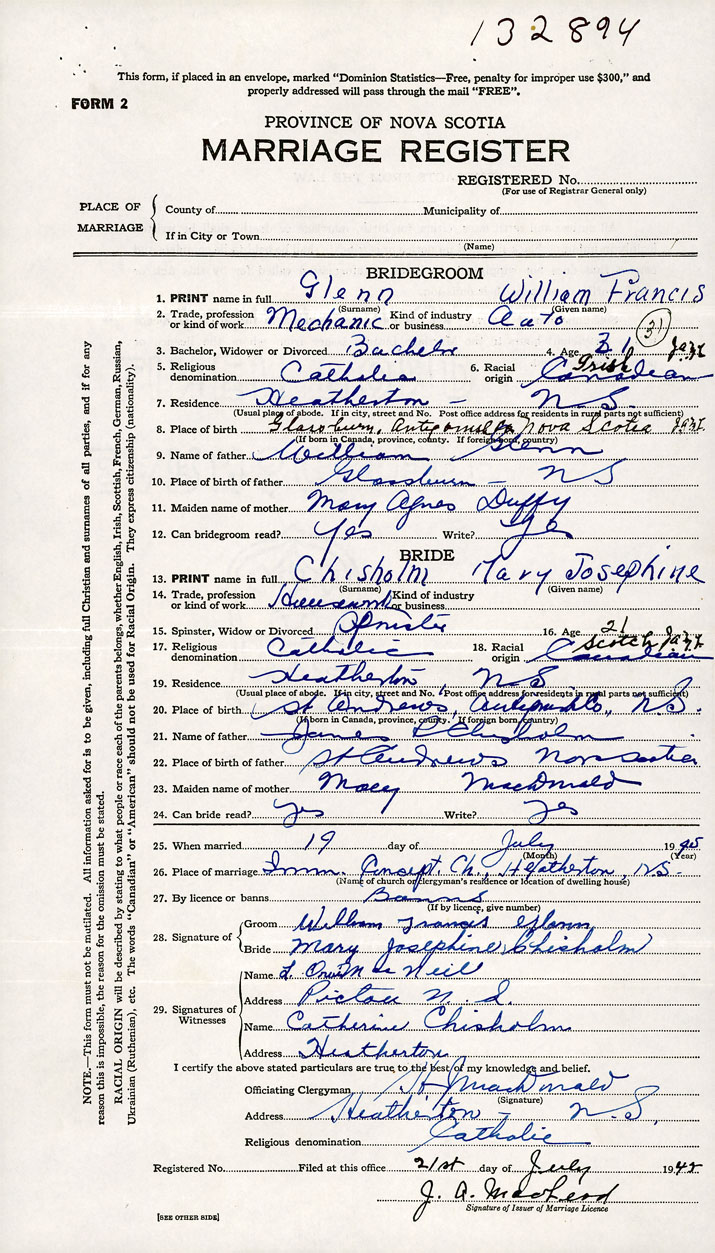 132894
This form, if placed in an envelope, marked "Dominion Statistics—Free, penalty for improper use $300," and
properly addressed will pass through the mail "FREE".
FORM 2
PROVINCE OF NOVA SCOTIA
MARRIAGE REGISTER
REGISTERED No.
(For use of Registrar General only)
PLACE OF MARRIAGE
County of Municipality of
If in City or Town
(Name)
BRIDEGROOM
1. PRINT name in full Glenn William Francis
(Surname) (Given name)
2. Trade, profession or kind of work Mechanic Kind of industry or business Auto
3. Bachelor, Widower or Divorced Bachelor 4. Age 31 (31)
5. Religious denomination Catholic 6. Racial origin Irish Canadian
7. Residence Heatherton - N.S.
(Usual place of abode. If in city, street and No. Post office address for residents in rural parts not sufficient)
8. Place of birth Glassburn, Antigonish, Nova Scotia
(If born in Canada, province, county. If foreign born, country)
9. Name of father William Glenn
10. Place of birth of father Glassburn - NS
11. Maiden name of mother Mary Agnes Duffy
12. Can bridegroom read? Yes Write? Yes
BRIDE
13. PRINT name in full Chisholm Mary Josephine
(Surname) (Given name)
14. Trade, profession or kind of work Housework Kind of industry or business
15. Spinster, Widow or Divorced Spinster 16. Age 21
17. Religious denomination Catholic 18. Racial origin Scotch Canadian
19. Residence Heatherton, N.S
(Usual place of abode. If in city, street and No. Post office address for residents in rural parts not sufficient)
20. Place of birth St Andrews, Antigonish, N.S.
(If born in Canada, province, county. If foreign born, country)
21. Name of father James Chisholm
22. Place of birth of father St Andrews Nova Scotia
23. Maiden name of mother Mary MacDonald
24. Can bride read? Yes Write? Yes
25. When married 19 day of July 19
(Month) (Year)
26. Place of marriage Imm. Concept. Ch., Heatherton, NS.
(Name of church or clergyman's residence or location of dwelling house)
27. By licence or banns Banns
(If by licence, give number)
28. Signature of
Groom William Francis Glenn
Bride Mary Josephine Chisholm
29. Signatures of Witnesses
Name Neill
Address Pictou N.S.
Name Catherine Chisholm
Address Heatherton
I certify the above stated particulars are true to the best of my knowledge and belief.
Officiating Clergyman MacDonald
(Signature)
Address Heatherton - N.S.
Religious denomination Catholic
Registered No. Filed at this office 21st day of July 1942
J. A. MacLeod
Signature of Issuer of Marriage Licence
[SEE OTHER SIDE]
NOTE.—This form must not be mutilated. All information asked for is to be given, including full Christian and surnames of all parties, and if for any
reason this is impossible, the reason for the omission must be stated.
RACIAL ORIGIN will be described by stating to what people or race each of the parents belongs, whether English, Irish, Scottish, French, German, Russian,
Ukrainian (Ruthenian), etc. The words "Canadian" or "American" should not be used for Racial Origin. They express citizenship (nationality).